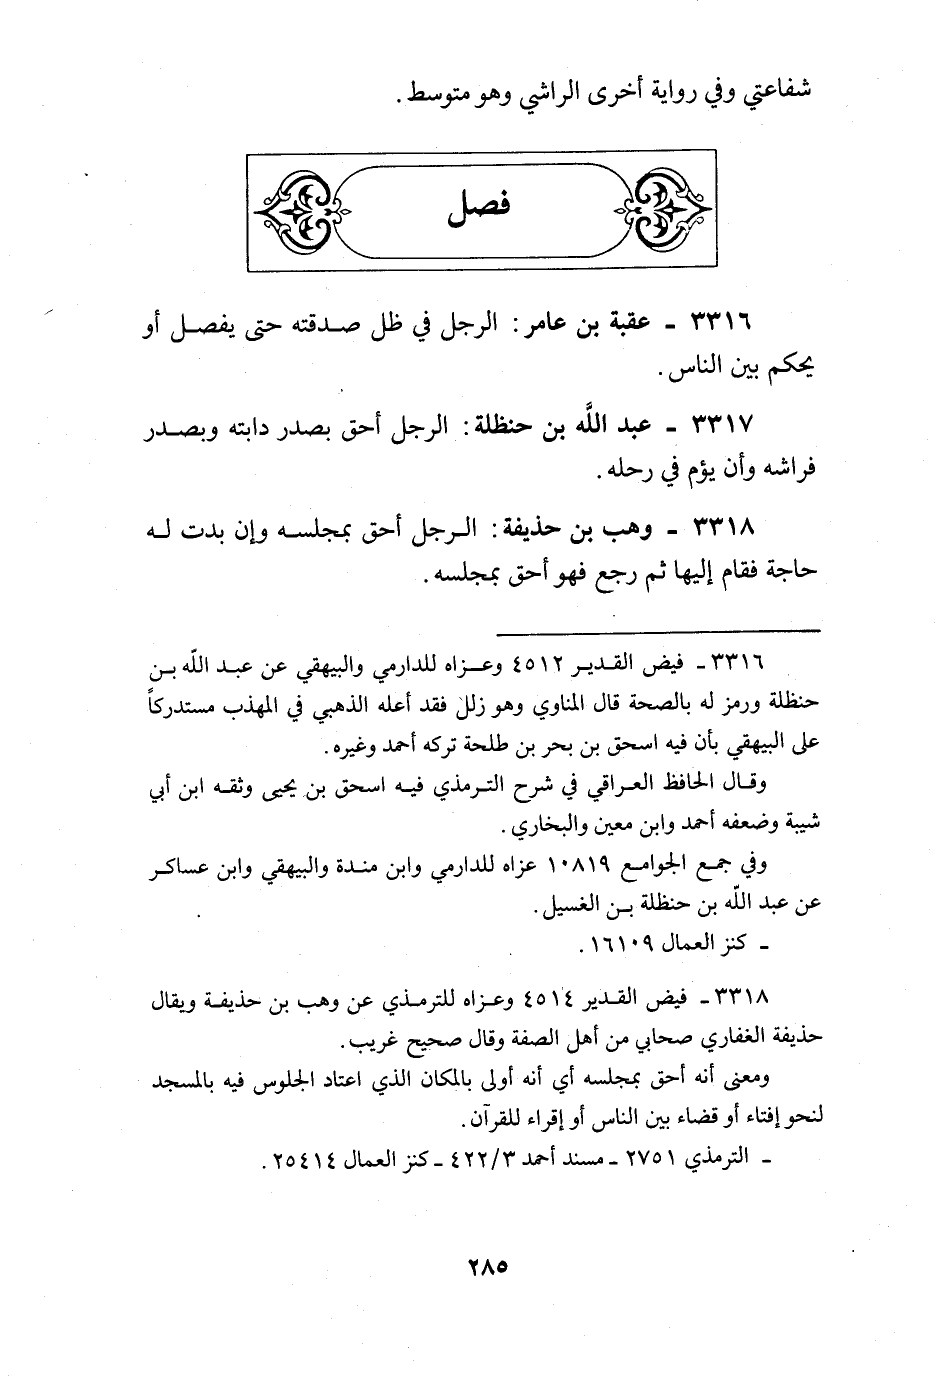 شفاعتي وفي رواية أخرى الراشي وهو متوسط .
فصل
٣٣١٦ ـ عقبة بن عامر : الرجل في ظل صـدقته حتى يفصـل أو
يحكم بين الناس .
٣٣١٧ ـ عبد اللَّه بن حنظلة : الرجل أحق بصدر دابته وبصـدر
فراشه وأن يؤم في رحله .
٣٣١٨ ـ وهب بن حذيفة : الـرجل أحق بمجلسـه وإن بدت لـه
حاجة فقام إليها ثم رجع فهو أحق بمجلسه .
٣٣١٦ ـ فيض القـدير ٤٥١٢ وعـزاه للدارمي والبيهقي عن عبـد اللّه بـن
حنظلة ورمز له بالصحة قال المناوي وهو زلل فقد أعله الذهبي في المهذب مستدركاً
على البيهقي بأن فيه اسحق بن بحر بن طلحة تركه أحمد وغيره .
وقـال الحافظ العـراقي في شرح التـرمذي فيـه اسحق بن يحيى وثقـه ابن أبي
شيبة وضعفه أحمد وابن معين والبخاري .
وفي جمـع الجوامـع ١٠٨١٩ عزاه للدارمي وابن منـدة والبيهقي وابن عساكـر
عن عبد اللّه بن حنظلة بـن الغسيل .
ـ كنز العمال ١٦١٠٩ .
٣٣١٨ ـ فيض القـدير ٤٥١٤ وعـزاه للترمـذي عن وهب بن حذيفـة ويقال
حذيفة الغفاري صحابي من أهل الصفة وقال صحيح غريب .
ومعنى أنه أحق بمجلسه أي أنه أولى بالمكان الذي اعتاد الجلوس فيه بالمسجد
لنحو إفتاء أو قضاء بين الناس أو إقراء للقرآن .
ـ الترمذي ٢٧٥١ ـ مسند أحمد ٤٢٢/٣ ـ كنز العمال ٢٥٤١٤ .
٢٨٥